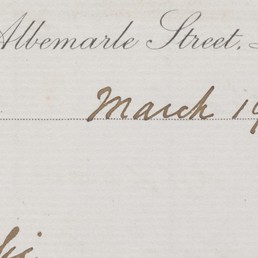 Albemarle Street.
March 19
Sir